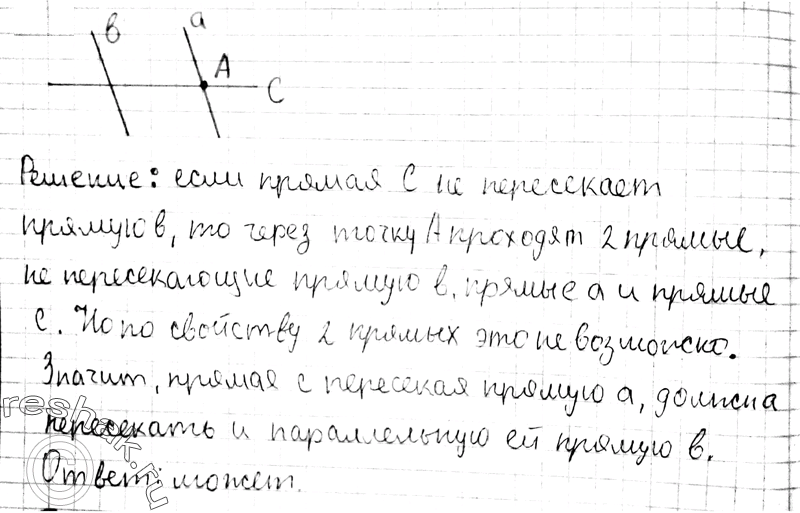 в а
А
С
Решение: если прямая С не пересекает
прямую в, то через точку А проходят 2 прямые,
не пересекающие прямую в, прямые а и прямые
С. Но по свойству 2 прямых это невозможно.
Значит, прямая с пересекая прямую а, должна
пересекать и параллельную ей прямую в.
Ответ: может.
reshak.ru